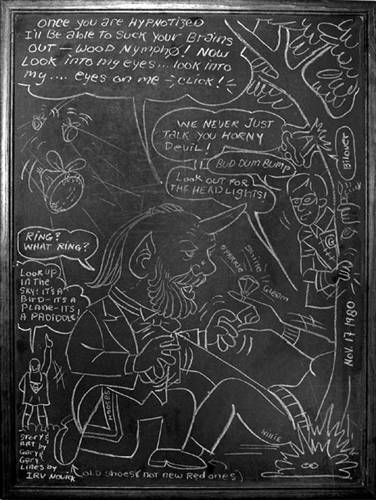 once you are HYPNOTIZED
I'll Be able to Suck Your Brains
OUT — WOOD Nymphø! NOW
Look into my eyes... look into
my.... eyes on me - click!
WE NEVER JUST
TALK YOU HORNY
DEVIL!
BUD DUM BUMP
Look OUT FOR
THE HEADLIGHTS!
SHINE!
SPARKLE
GLEAM
G
Nov. 17 1980
RING?
WHAT RING?
Look UP
IN THE
SKY! IT'S A
BIRD - IT'S A
PLANE - IT'S
A PADIDDLE
STORY &
ART by
Gary &
Gary
Lines by
IRV Novick
(OLD SHOES (not new Red ones)